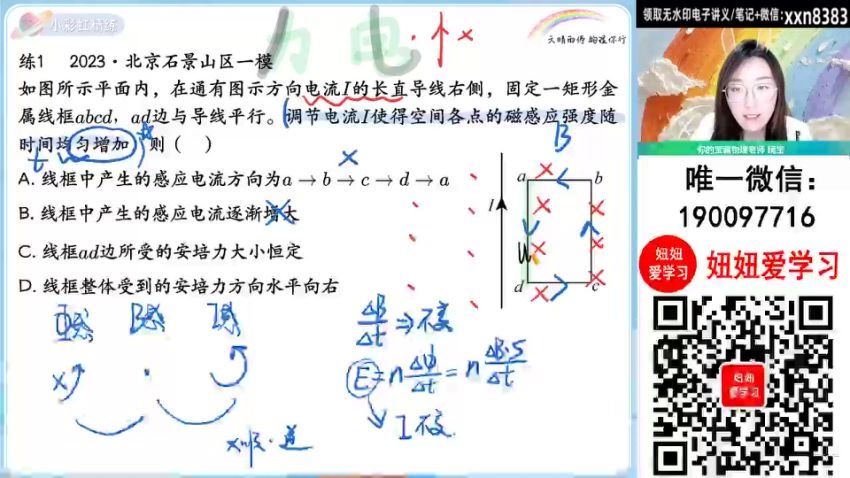 小彩虹精练
力电·↑×
天晴雨停 绚虹伴行
练1 2023·北京石景山区一模
如图所示平面内，在通有图示方向电流I的长直导线右侧，固定一矩形金
属线框abcd，ad边与导线平行。调节电流I使得空间各点的磁感应强度随
时间均匀增加，则（ ）
t
B
A. 线框中产生的感应电流方向为a→b→c→d→a
B. 线框中产生的感应电流逐渐增大
C. 线框ad边所受的安培力大小恒定
D. 线框整体受到的安培力方向水平向右
I
a
b
d
c
B感
I感
ΔB/Δt ⇒ 不变
E=nΔΦ/Δt=nΔB·S/Δt
I不变
×顺·逆
领取无水印电子讲义/笔记+微信：xxn8383
唯一微信：
190097716
妞妞
爱学习
妞妞爱学习
妞妞
爱学习